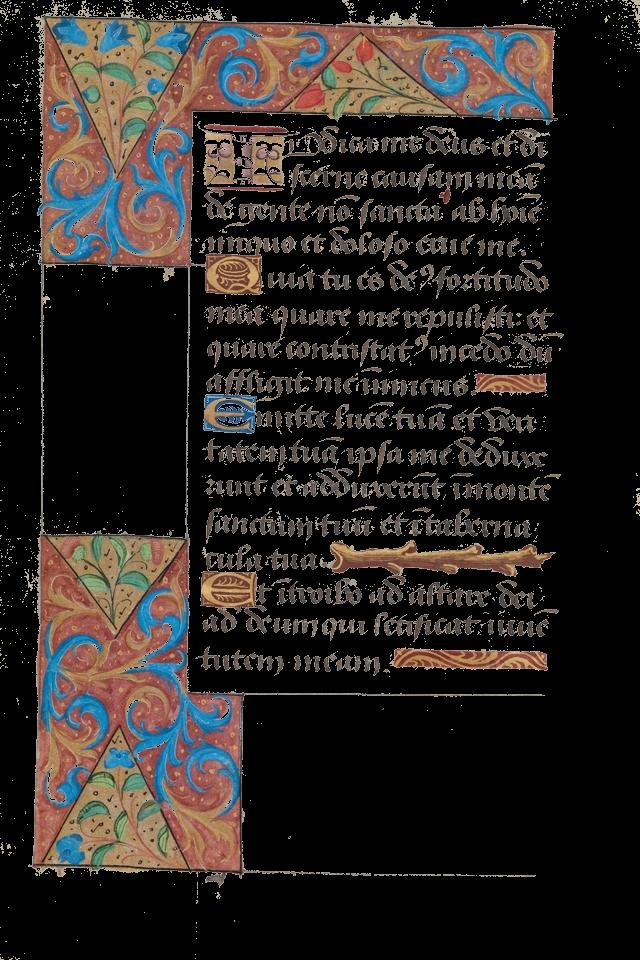 Iudica me deus et di
scerne causam meā
de gente nō sancta ab hoīe
iniquo et doloso erue me.
Quia tu es deꝰ fortitudo
mea quare me repulisti: et
quare contristatꝰ incedo dū
affligit me inimicus.
Emitte lucē tuā et veri
tatem tuā ipsa me deduxe
runt et adduxerūt ī montē
sanctum tuū et ī taberna
cula tua.
Et ītroibo ad altare dei
ad deum qui letificat iuuē
tutem meam.